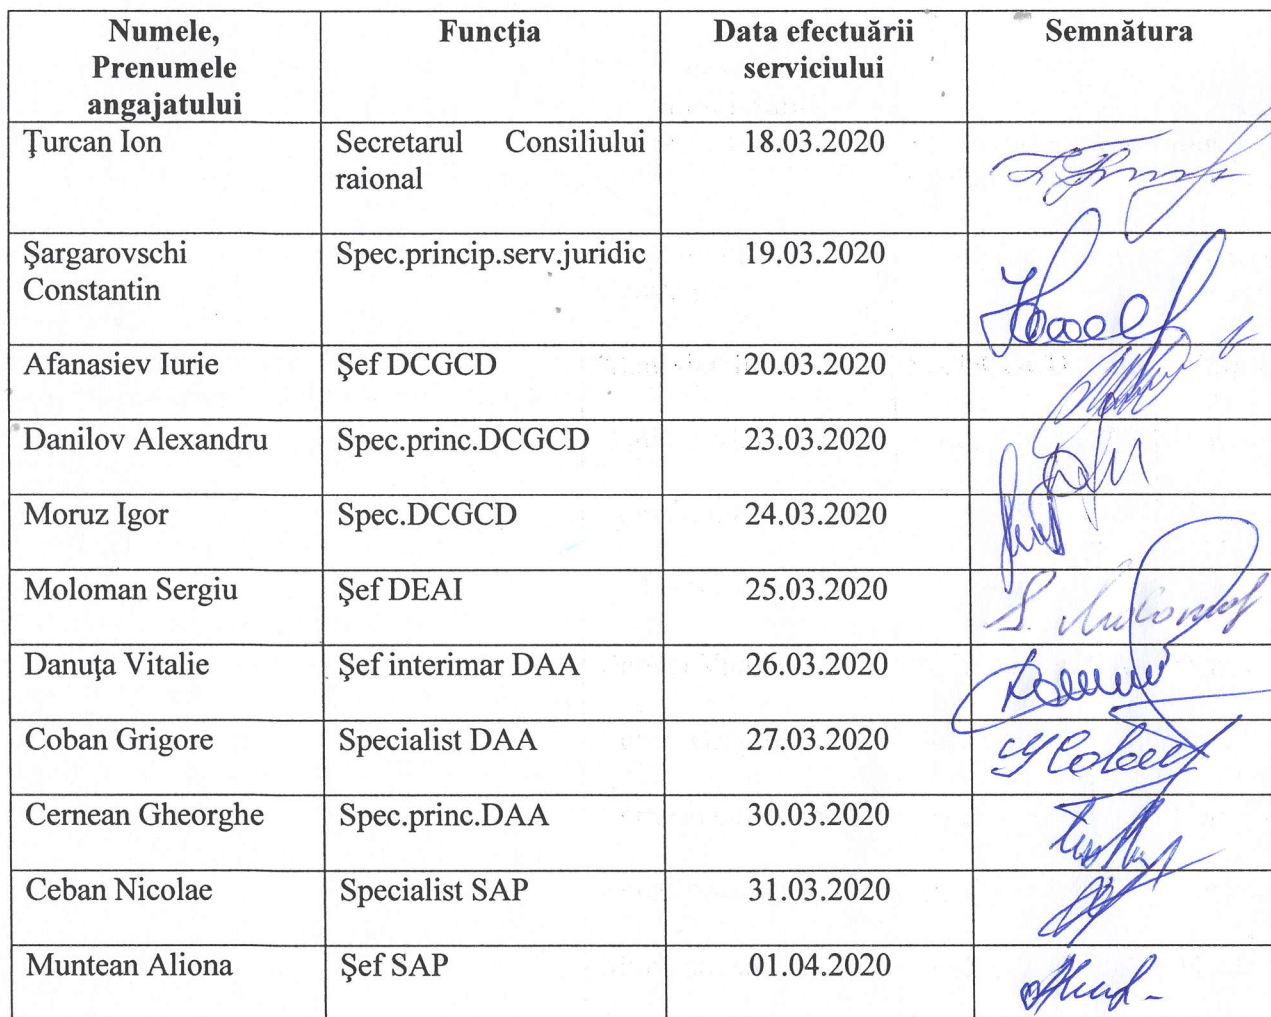 Numele, Prenumele angajatului	Funcţia	Data efectuării serviciului	Semnătura
Ţurcan Ion	Secretarul Consiliului raional	18.03.2020
Şargarovschi Constantin	Spec.princip.serv.juridic	19.03.2020
Afanasiev Iurie	Şef DCGCD	20.03.2020
Danilov Alexandru	Spec.princ.DCGCD	23.03.2020
Moruz Igor	Spec.DCGCD	24.03.2020
Moloman Sergiu	Şef DEAI	25.03.2020
Danuţa Vitalie	Şef interimar DAA	26.03.2020
Coban Grigore	Specialist DAA	27.03.2020
Cernean Gheorghe	Spec.princ.DAA	30.03.2020
Ceban Nicolae	Specialist SAP	31.03.2020
Muntean Aliona	Şef SAP	01.04.2020